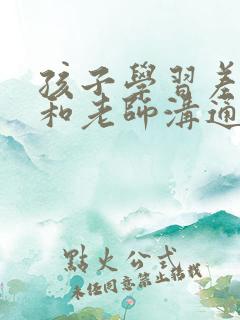 孩子學習差
和老師溝通
點火公式
未經同意禁止轉載